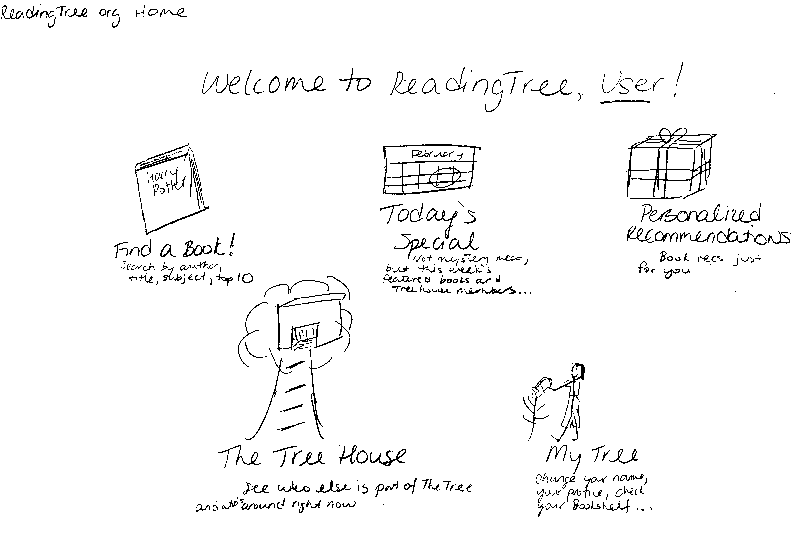 ReadingTree org Home
Welcome to ReadingTree, User!
Harry
Potter
February
Find a Book!
Search by author,
title, subject, top 10
Today's
Special
Not mystery meat,
but this week's
featured books and
Treehouse members...
Personalized
Recommendations
Book recs just
for you
The Tree House
See who else is part of The Tree
and who's around right now
My Tree
Change your name,
your profile, check
your Bookshelf...